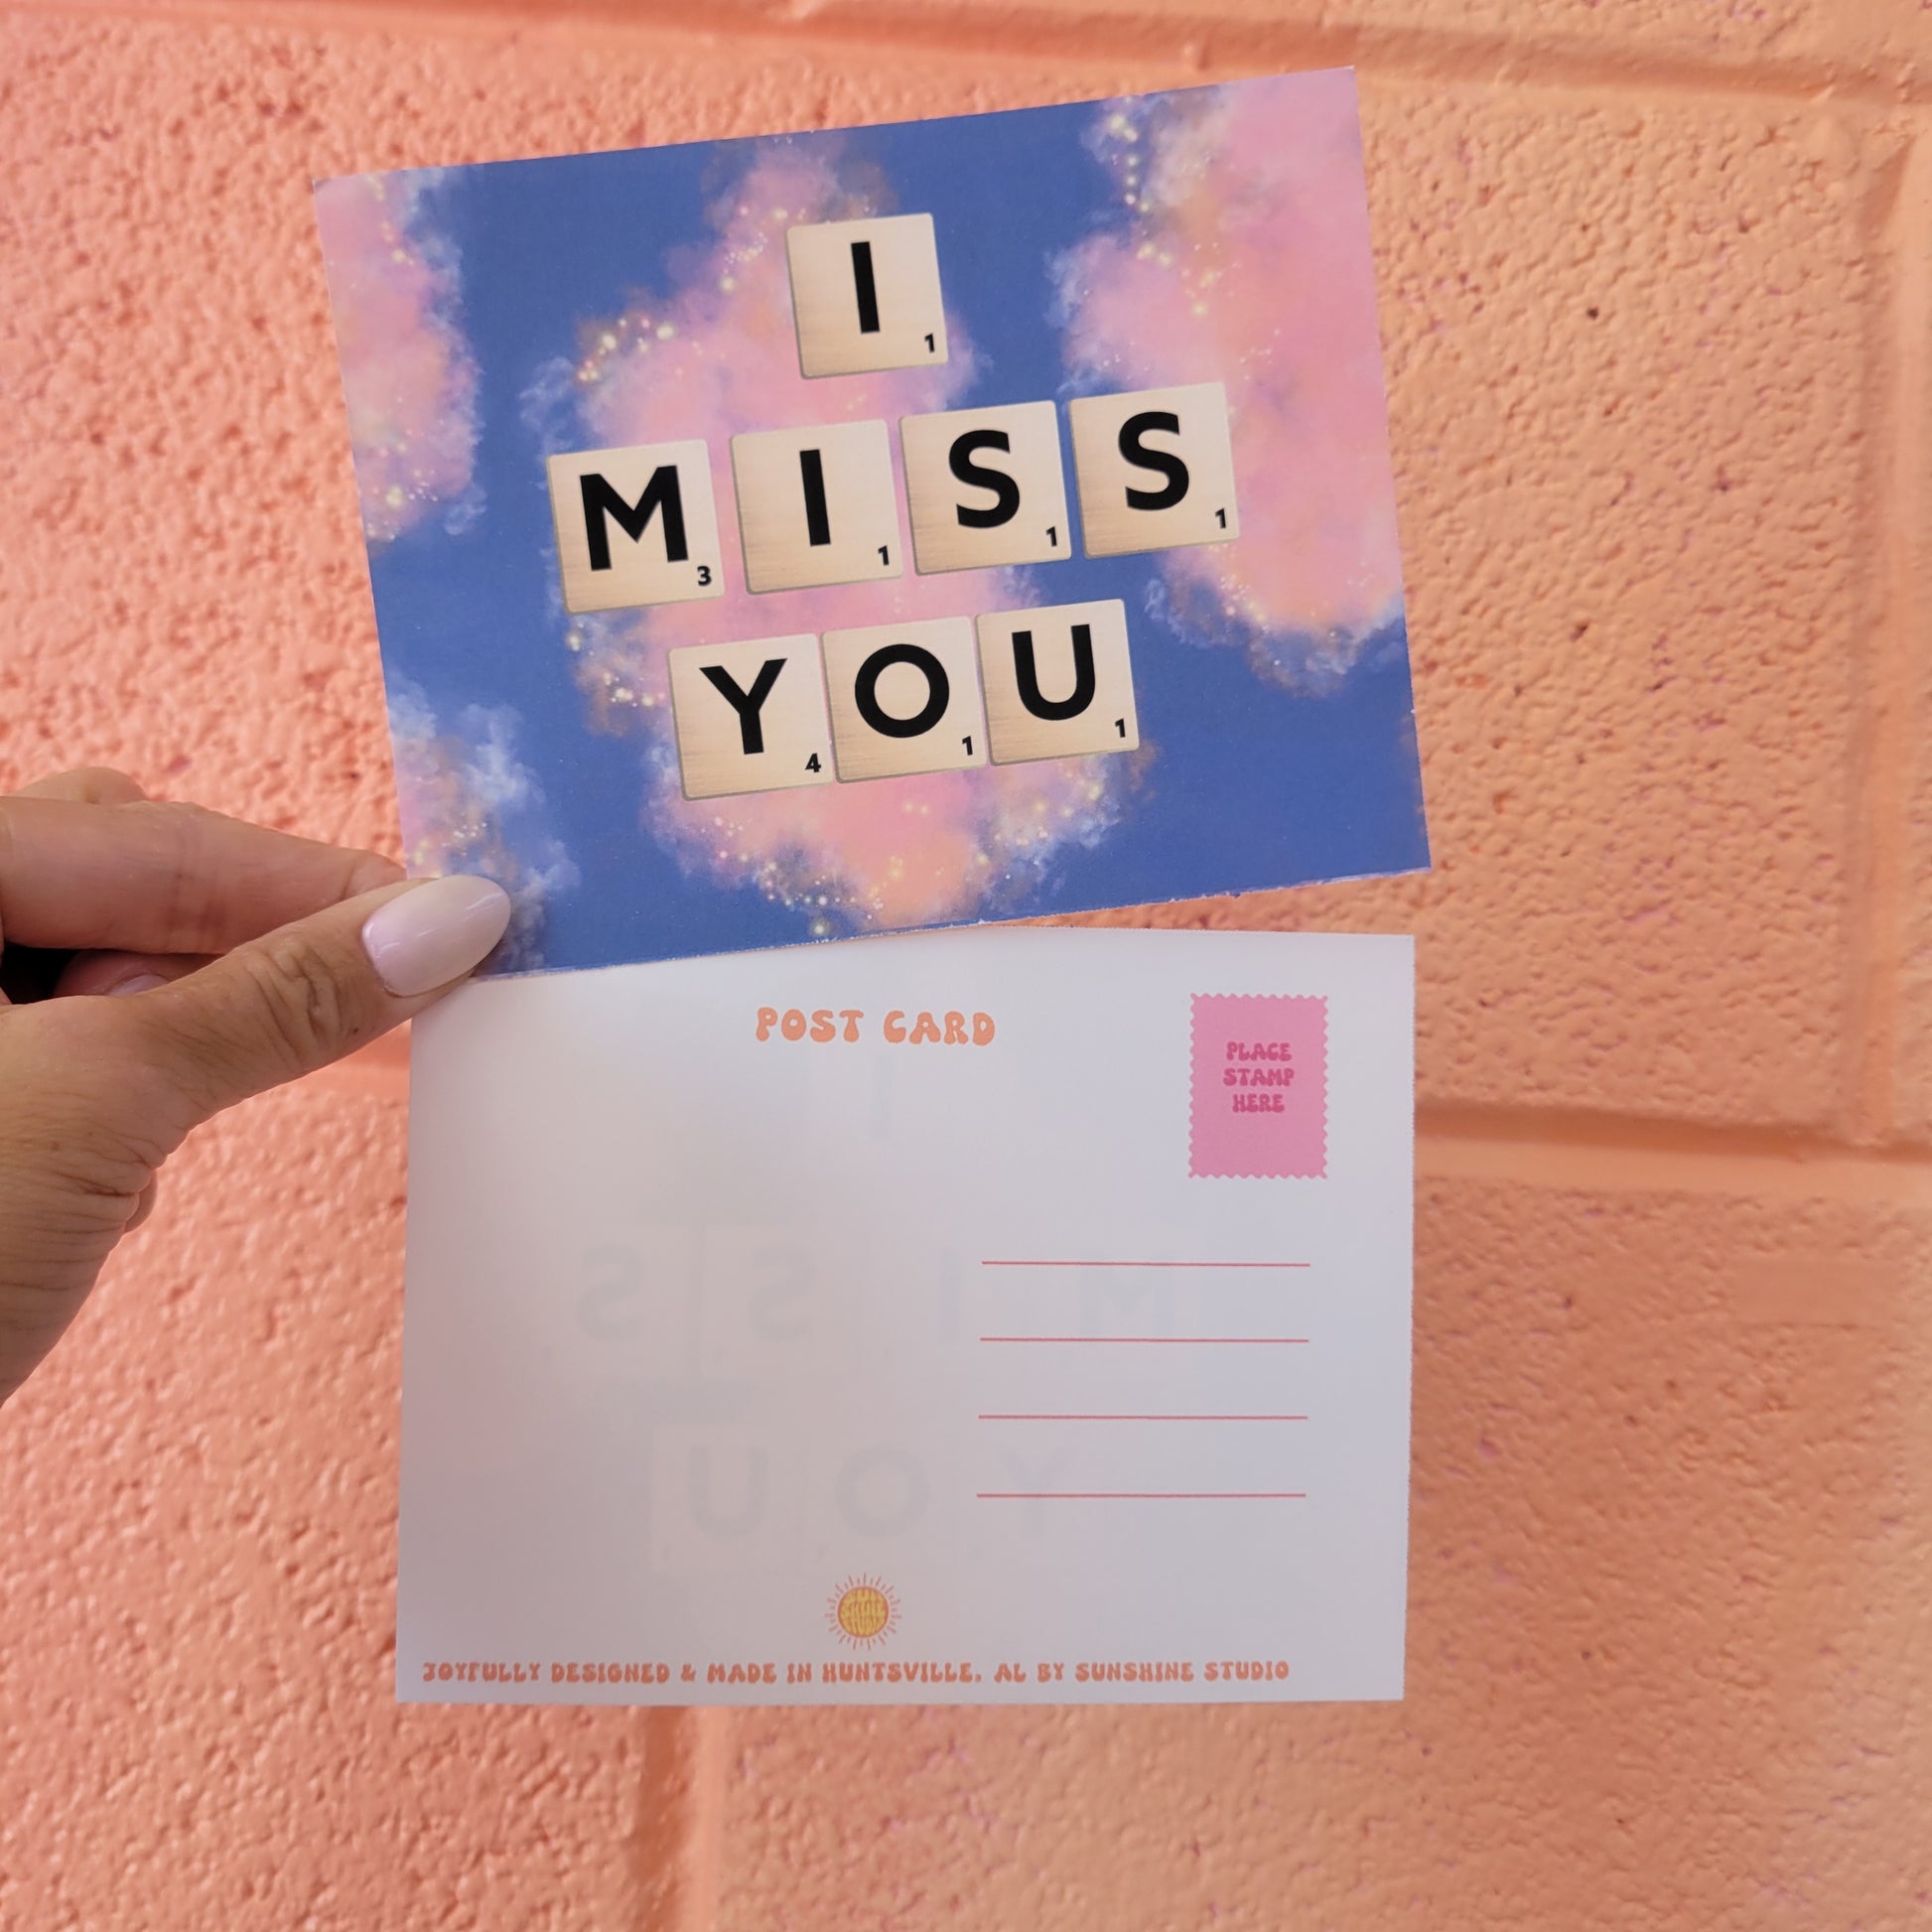 I
1
MISS
3 1 1 1
YOU
4 1 1
POST CARD
PLACE
STAMP
HERE
JOYFULLY DESIGNED & MADE IN HUNTSVILLE, AL BY SUNSHINE STUDIO